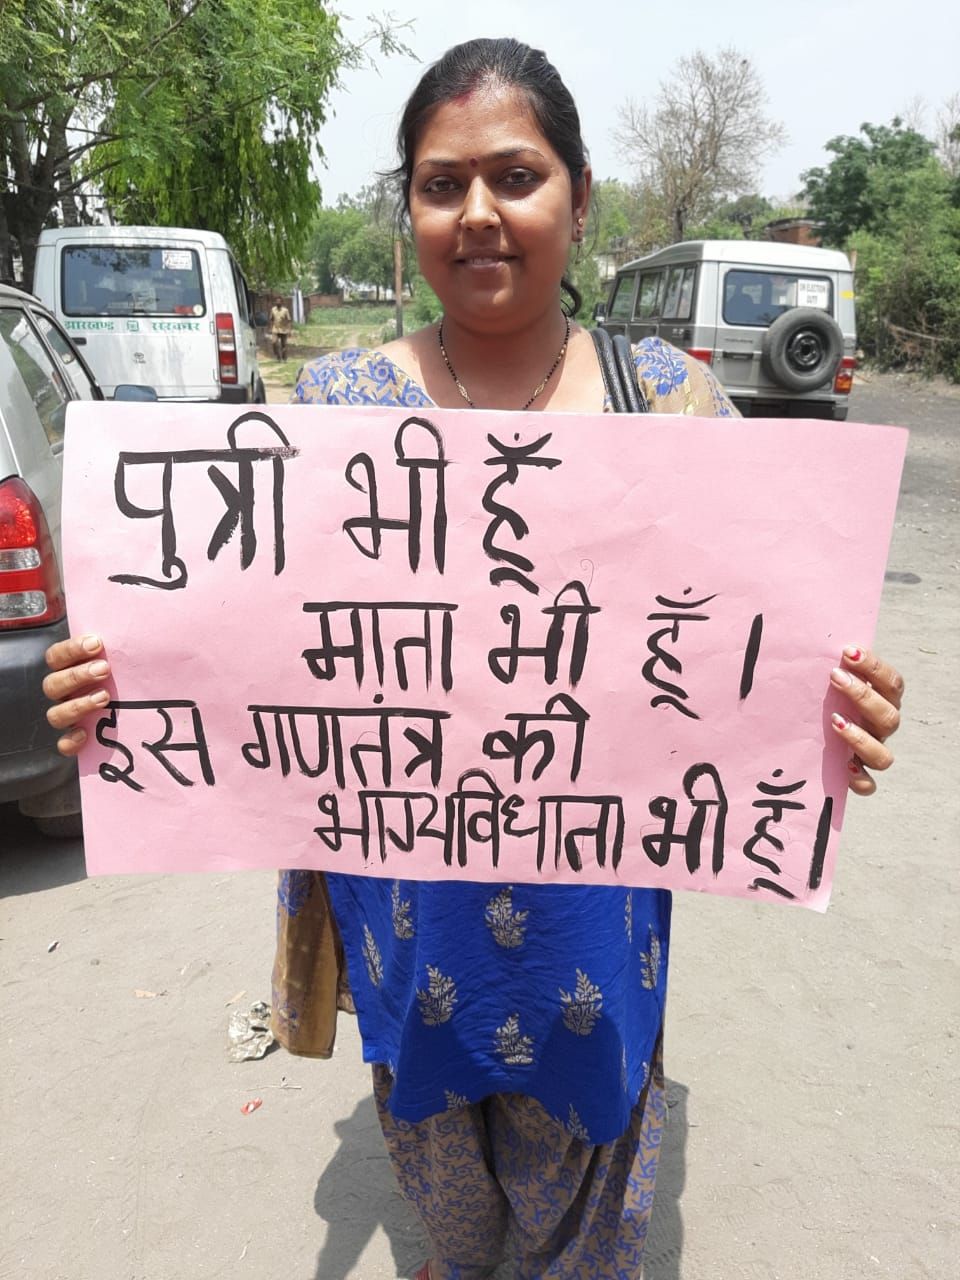 पुत्री भी हूँ
माता भी हूँ।
इस गणतंत्र की
भाग्यविधाता भी हूँ।
झारखण्ड सरकार
ON ELECTION
DUTY